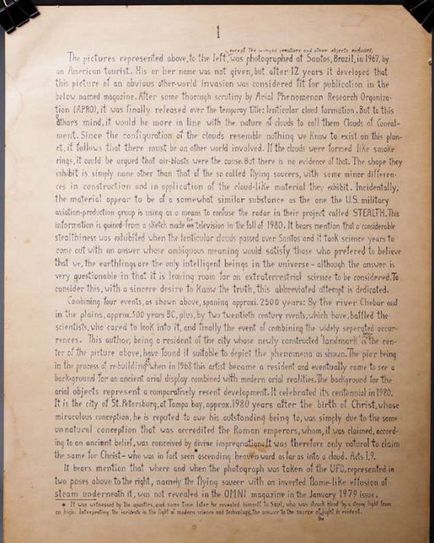 1
except the winged creature and other objects included,
The pictures represented above, to the left, was photographed at Santos, Brazil, in 1967, by
an American tourist. His or her name was not given, but after 12 years it developed that
this picture of an obvious other-world invasion was considered fit for publication in the
below named magazine. After some thorough scrutiny by Arial Phenomenon Research Organiza-
tion (APRO), it was finally released over the temporay title: lenticular cloud formation. But to this
athors mind, it would be more in line with the nature of clouds to call them Clouds of Conceal-
ment. Since the configuration of the clouds resemble nothing we know to exist on this plan-
et, it follows that there must be an other world involved. If the clouds were formed like smoke
rings, it could be argued that air-blasts were the cause. But there is no evidence of that. The shape they
exhibit is simply none other than that of the so called flying saucers, with some minor differen-
ces in construction and in application of the cloud-like material they exhibit. Incidentally,
the material appear to be of a somewhat similar substance as the one the U.S. military
aviation-production group is using as a means to confuse the radar in their project called STEALTH. This
information is gained from a sketch made on television in the fall of 1980. It bears mention that a considerable
stealthiness was exhibited when the lenticular clouds passed over Santos and it took science years to
come out with an answer whose ambiguous meaning would satisfy those who prefered to believe
that we, the earthlings are the only intelligent beings in the universe - although the answer is
very questionable in that it is leaving room for an extraterrestrial science to be considered. To
consider this, with a sincere desire to Know the truth, this abbreviated attempt is dedicated.
Combining four events, as shown above, spaning approxi. 2500 years: By the river Chebar and
in the plains, approx. 500 years BC, plus, by two twentieth century events, which have, baffled the
scientists, who cared to look into it, and finally the event of combining the widely seperated occur-
rences. This author, being a resident of the city whose newly constructed landmark is the cen-
ter of the picture above, have found it suitable to depict the phenomena as shown. The pier being
in the process of re-building when in 1968 this artist became a resident and eventually came to see a
background for an ancient arial display combined with modern arial realities. The background for the
arial objects represent a comparatively resent development. It celebrated its centennial in 1980.
It is the city of St. Petersburg, at Tampa bay, approx. 1980 years after the birth of Christ, whose
miraculous conception, he is reported to owe his outstanding being to, was simply due to the same
un-natural conception that was accredited the Roman emperors, whom, it was claimed, accord-
ing to an ancient belief, was conceived by divine impregnation. It was therefore only natural to claim
the same for Christ - who was in fact seen ascending heavenward as far as into a cloud. Acts 1,9.
It bears mention that where and when the photograph was taken of the UFO, represented in
two poses above to the right, namely the flying saucer with an inverted flame-like effusion of
steam underneath it, was not revealed in the OMNI magazine in the January 1979 issue.
* It was witnessed by the apostles, and some time later he revealed himself to Saul, who was struck blind by a strong light from
on high. Interpreting the incidents in the light of modern science and technology, the answer to the source of light is evident.